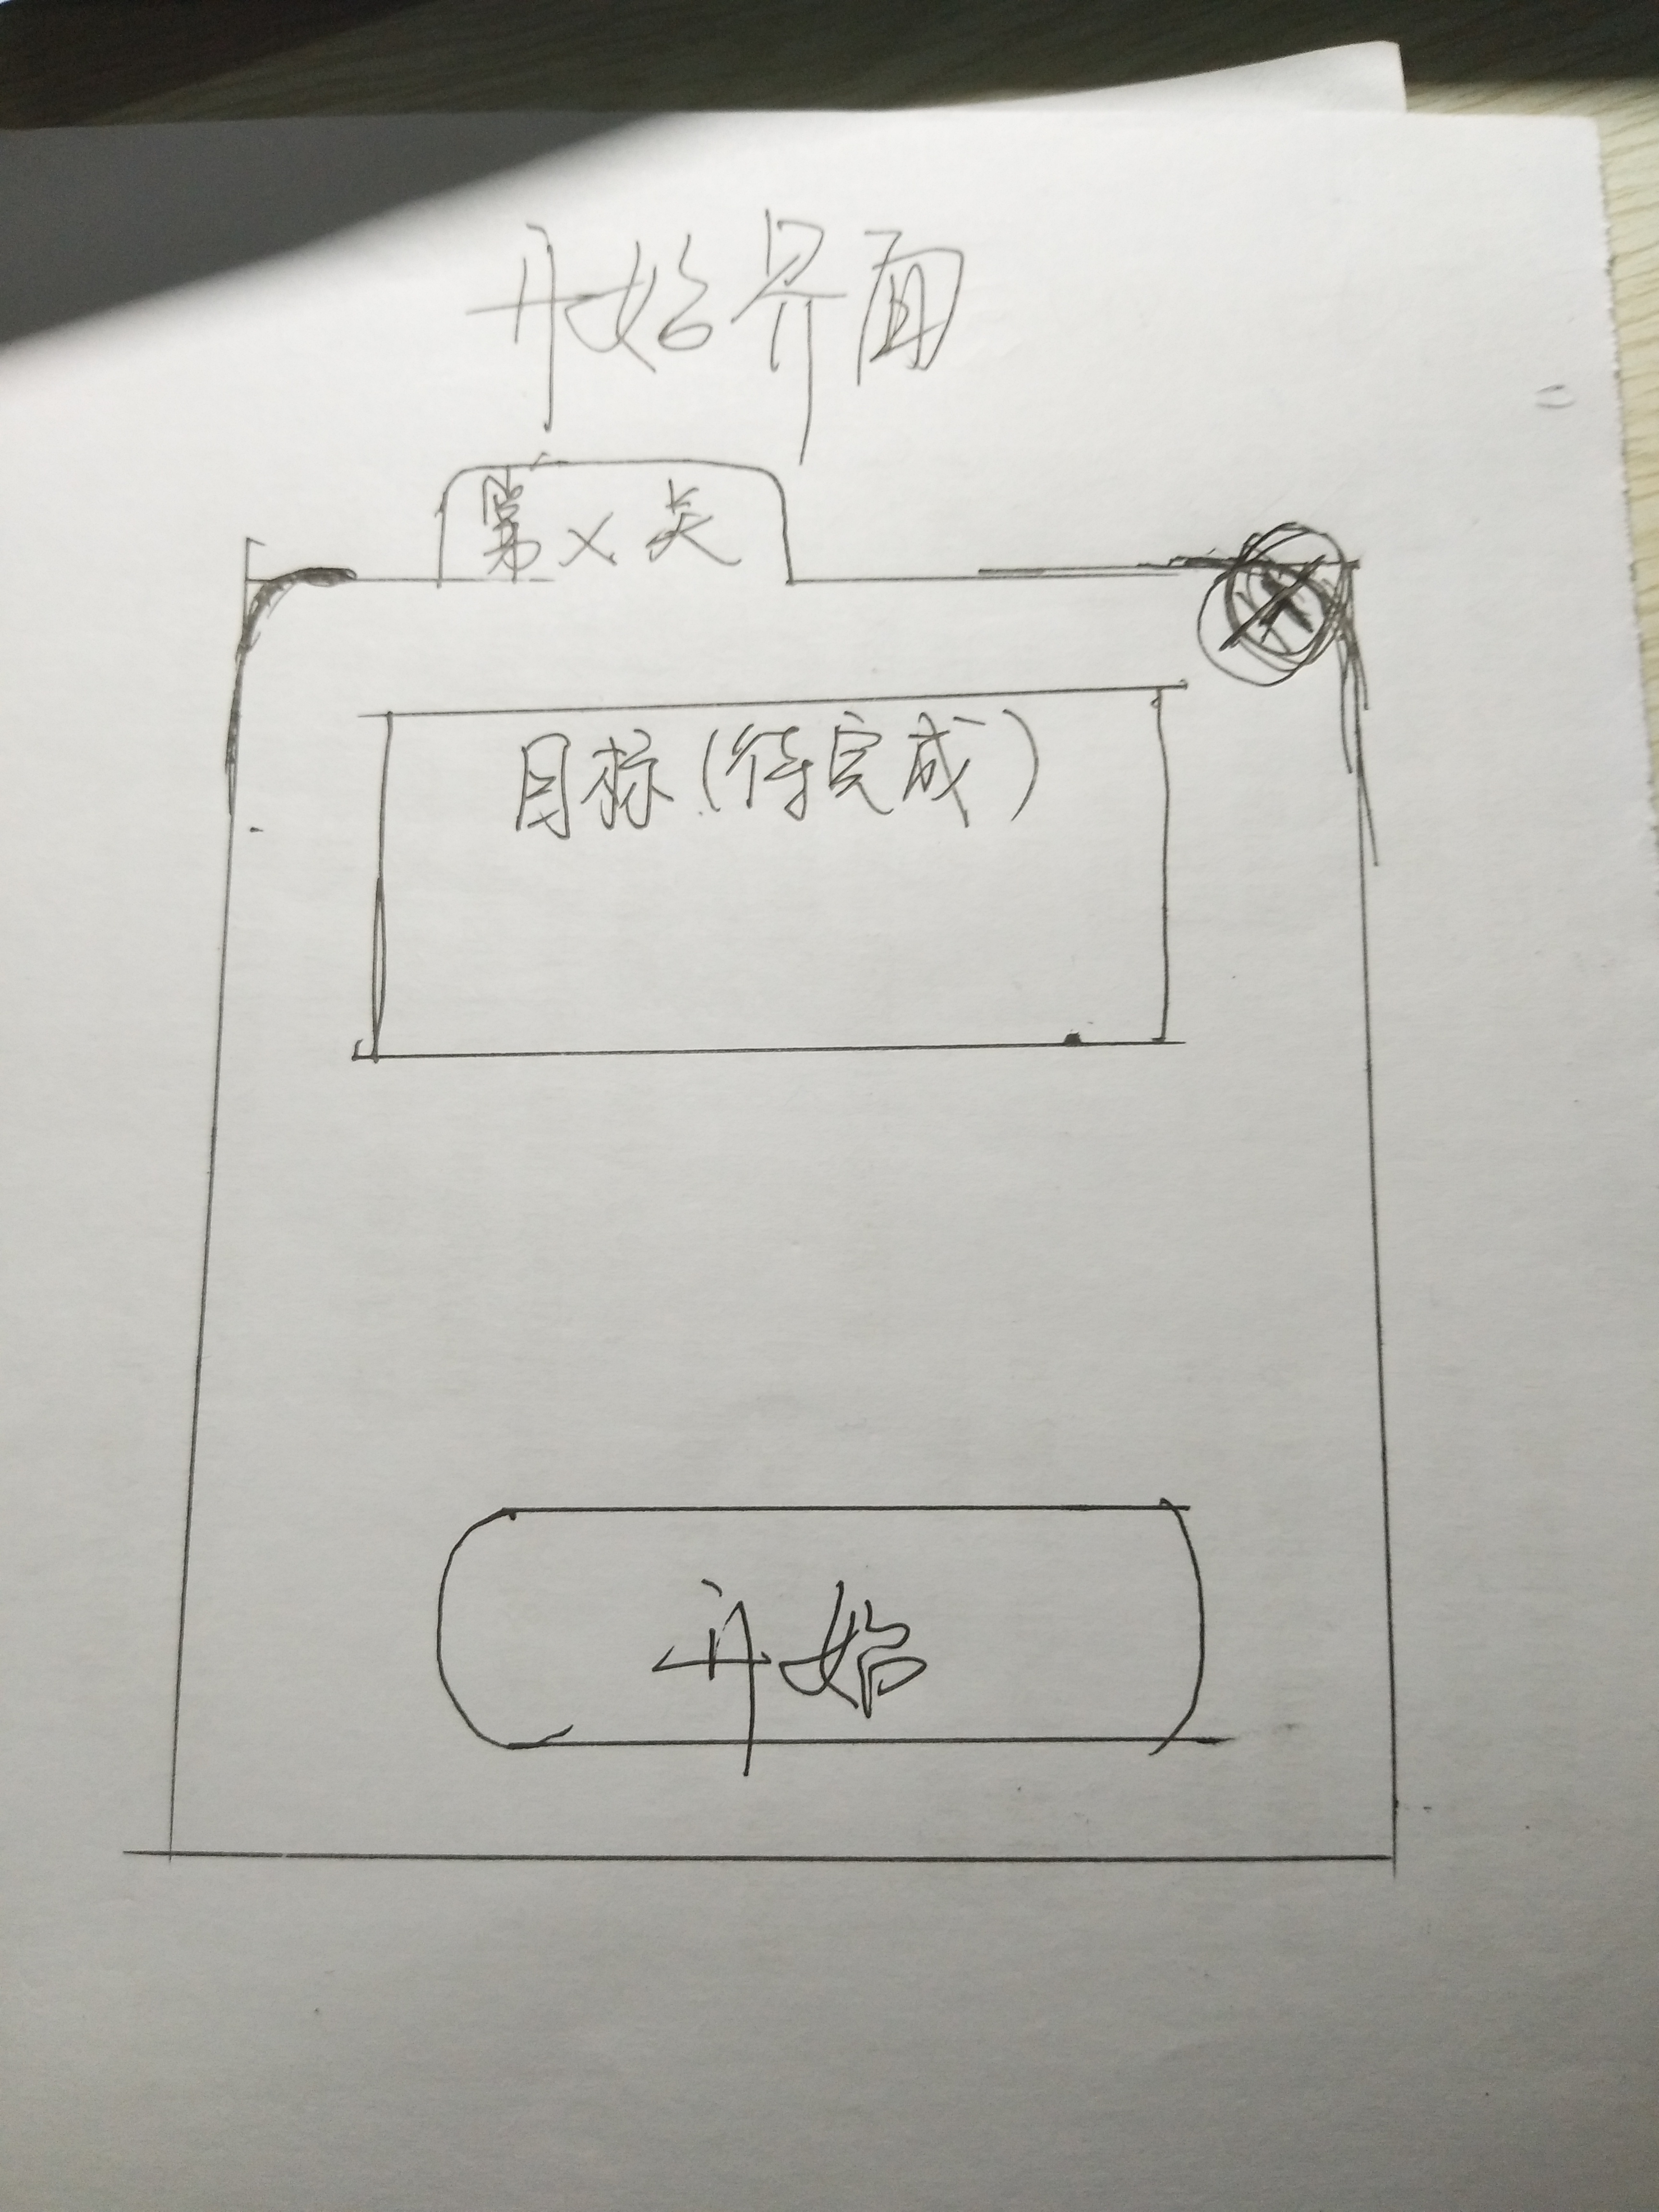 开始界面
第X关
目标(待完成)
开始